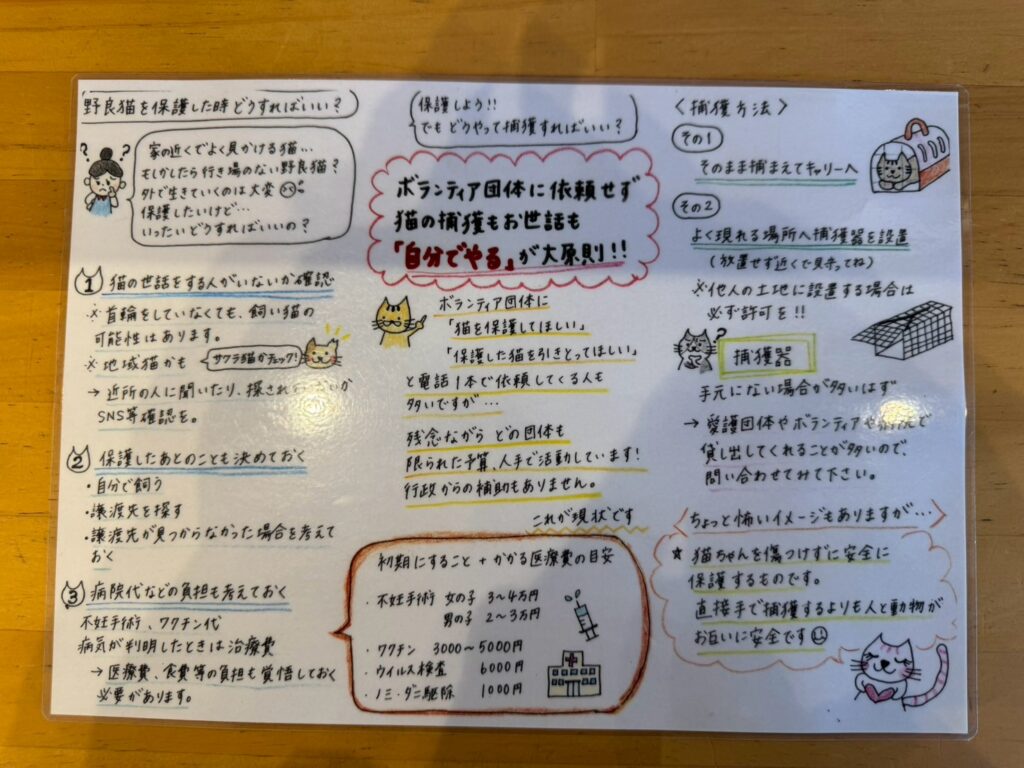 野良猫を保護した時どうすればいい？
家の近くでよく見かける猫…
もしかしたら行き場のない野良猫？
外で生きていくのは大変
保護したいけど…
いったいどうすればいいの？
1 猫の世話をする人がいないか確認
※首輪をしていなくても、飼い猫の
可能性はあります。
※地域猫かも
サクラ猫かチェック！
→近所の人に聞いたり、探され
SNS等確認を。
2 保護したあとのことも決めておく
・自分で飼う
・譲渡先を探す
・譲渡先が見つからなかった場合を考えて
おく
3 病院代などの負担も考えておく
不妊手術、ワクチン代
病気が判明したときは治療費
→医療費、食費等の負担も覚悟しておく
必要があります。
保護しよう!!
でもどうやって捕獲すればいい？
ボランティア団体に依頼せず
猫の捕獲もお世話も
「自分でやる」が大原則!!
ボランティア団体に
「猫を保護してほしい」
「保護した猫を引きとってほしい」
と電話1本で依頼してくる人も
多いですが…
残念ながらどの団体も
限られた予算、人手で活動しています！
行政からの補助もありません。
これが現状です
初期にすること+かかる医療費の目安
・不妊手術 女の子 3〜4万円
男の子 2〜3万円
・ワクチン 3000〜5000円
・ウイルス検査 6000円
・ノミ・ダニ駆除 1000円
〈捕獲方法〉
その1
そのまま捕まえてキャリーへ
その2
よく現れる場所へ捕獲器を設置
(放置せず近くで見守ってね)
※他人の土地に設置する場合は
必ず許可を!!
捕獲器
手元にない場合が多いはず
→愛護団体やボランティアや病院で
貸し出してくれることが多いので、
問い合わせてみて下さい。
ちょっと怖いイメージもありますが…
★猫ちゃんを傷つけずに安全に
保護するものです。
直接手で捕獲するよりも人と動物が
お互いに安全です